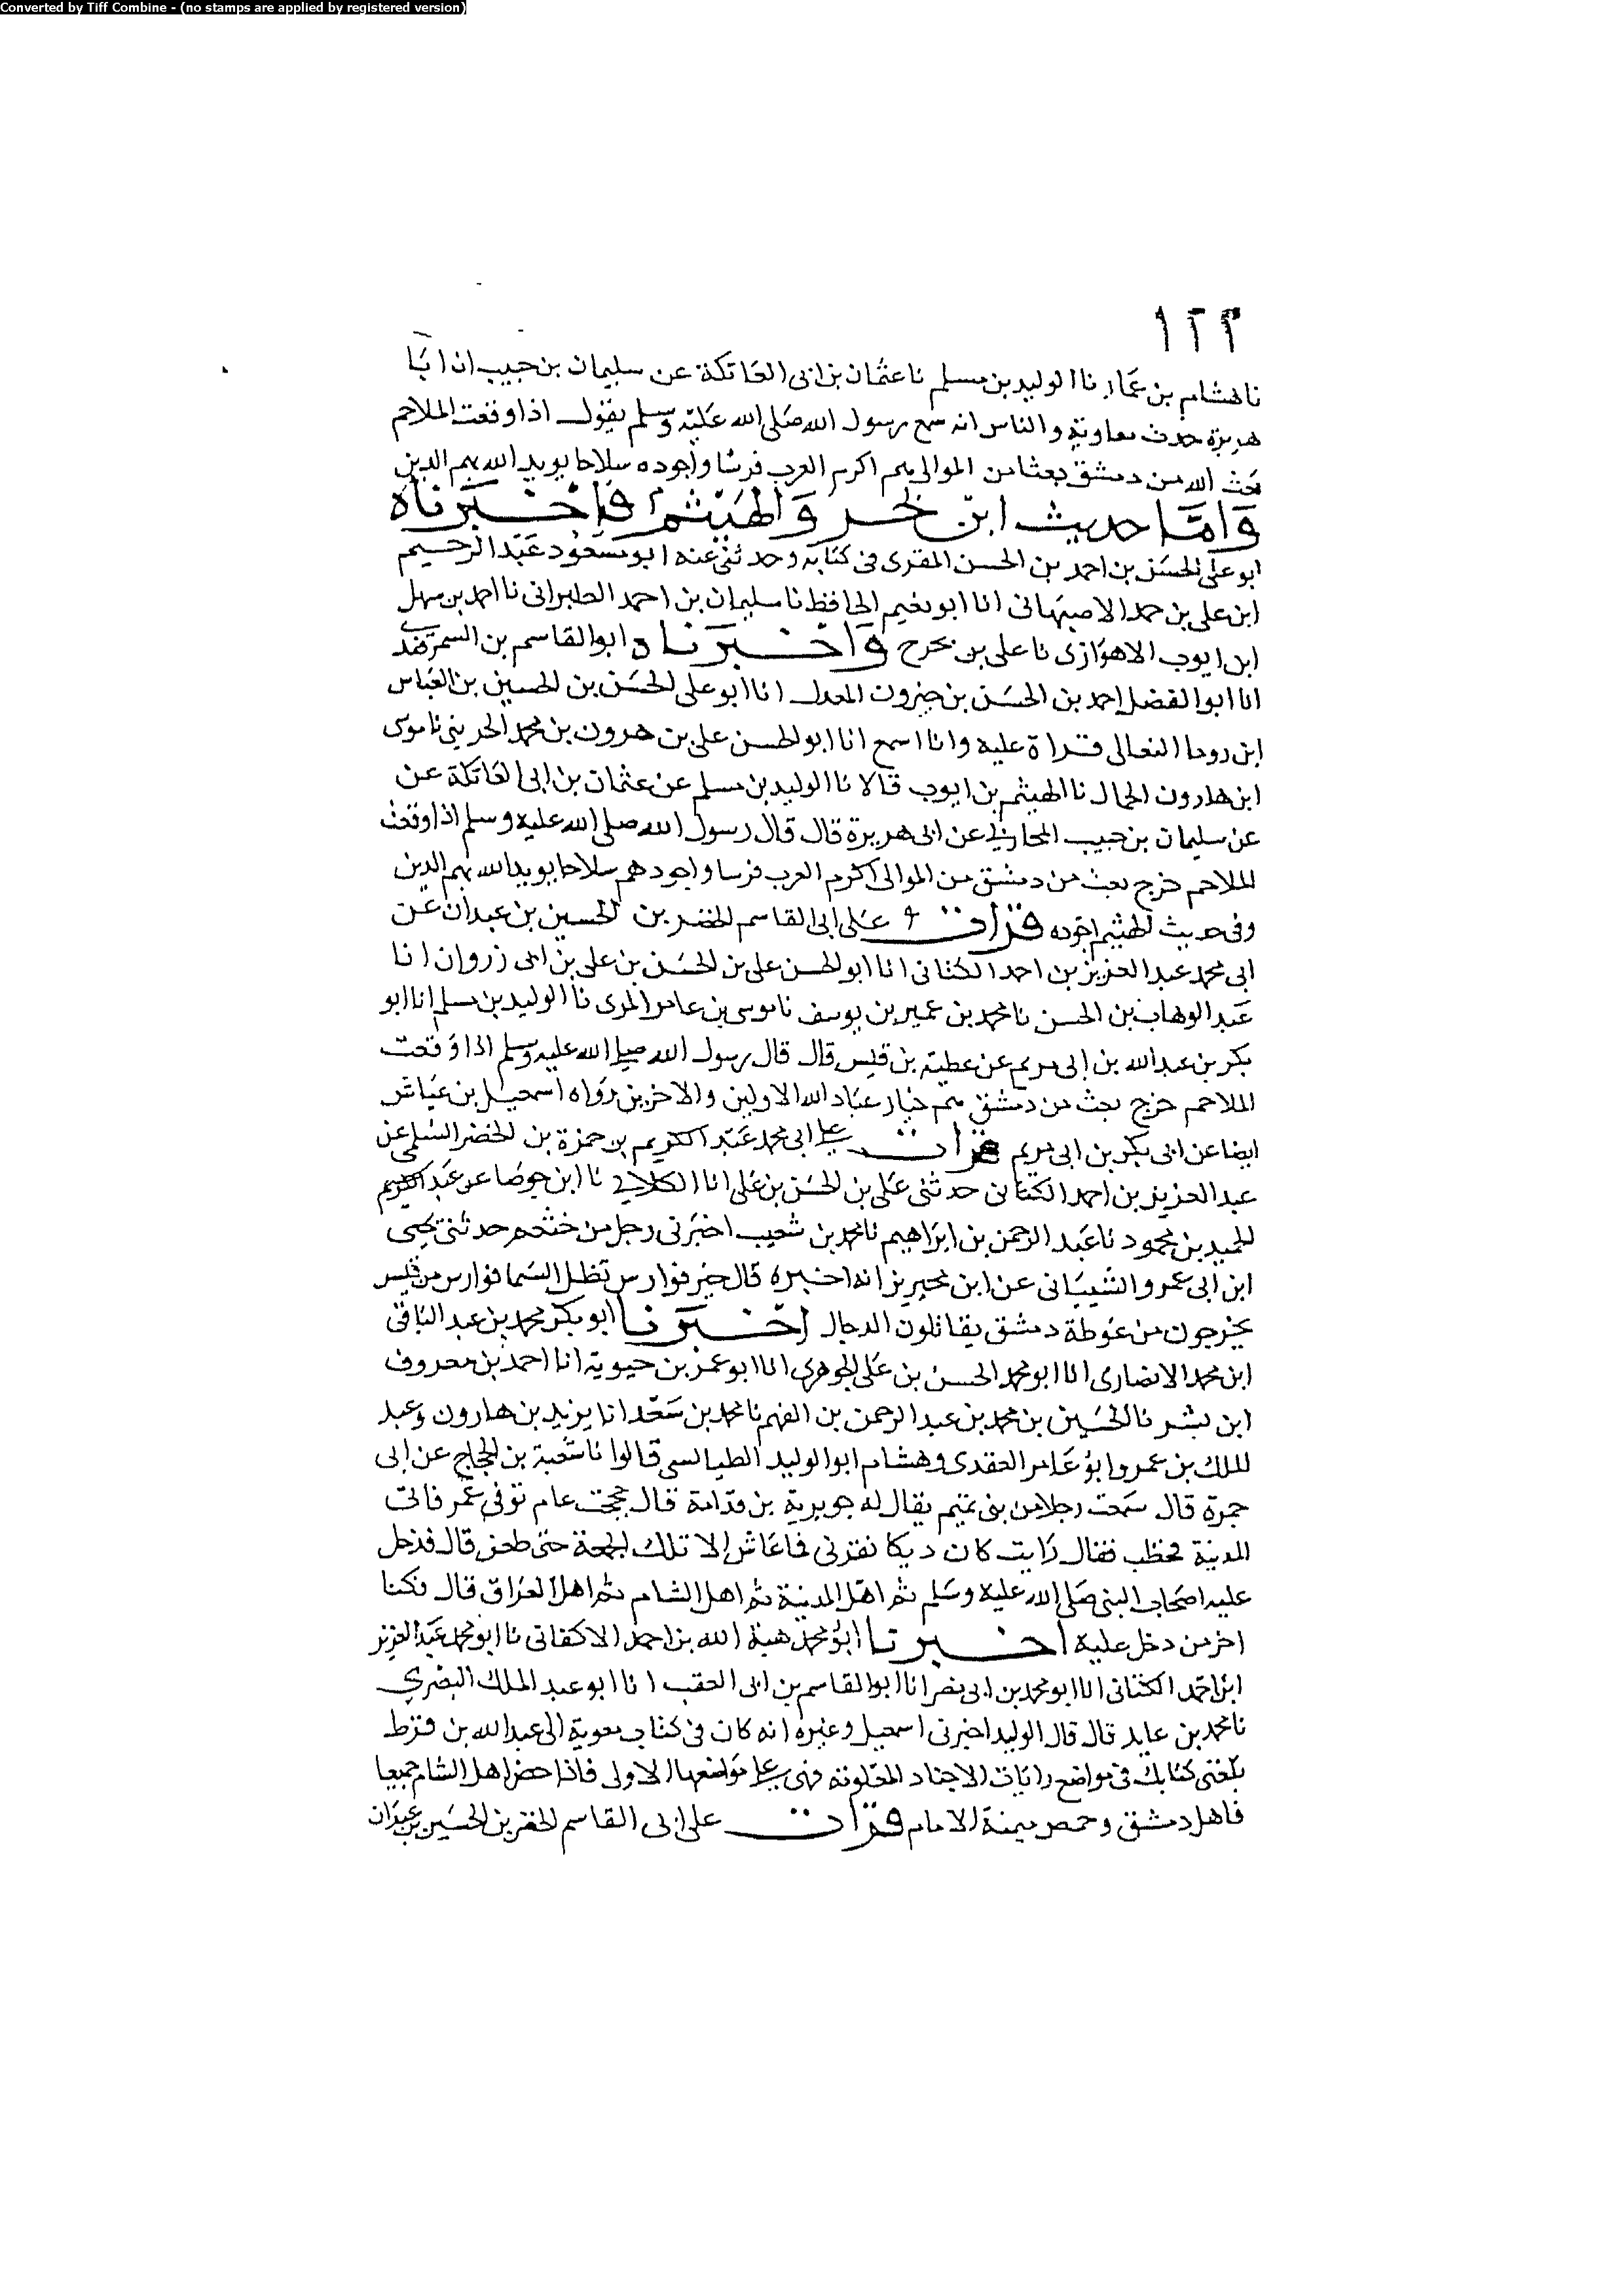 Converted by Tiff Combine - (no stamps are applied by registered version)
١٢٣
نا هشام بن عمار نا الوليد بن مسلم نا عثمان بن ابى العاتكة عن سليمان بن حبيب ان ابا
هريرة حدث معاوية والناس انه سمع رسول الله صلى الله عليه وسلم يقول اذا وقعت الملاحم
بعث الله من دمشق بعثا من الموالى هم اكرم العرب فرسا واجوده سلاحا يويد الله بهم الدين
واما حديث ابن بحر والهيثم فاخبرناه
ابو على الحسن بن احمد بن الحسن المقرى فى كتابه وحدثنى عنه ابو مسعود عبد الرحيم
ابن على بن حمد الاصبهانى انا ابو نعيم الحافظ نا سليمان بن احمد الطبرانى نا احمد بن سهل
ابن ايوب الاهوازى نا على بن بحر ح واخبرناه ابو القاسم بن السمرقندى
انا ابو الفضل احمد بن الحسن بن خيرون المعدل انا ابو على الحسن بن الحسين بن العباس
ابن روما النعالى قراة عليه وانا اسمع انا ابو الحسن على بن هرون بن محمد الحربى نا موسى
ابن هارون الحمال نا الهيثم بن ايوب قالا نا الوليد بن مسلم عن عثمان بن ابى العاتكة عن
عن سليمان بن حبيب المحاربى عن ابى هريرة قال قال رسول الله صلى الله عليه وسلم اذا وقعت
الملاحم خرج بعث من دمشق من الموالى اكرم العرب فرسا واجودهم سلاحا يويد الله بهم الدين
وفى حديث الهيثم اجوده قرات على ابى القاسم الخضر بن الحسين بن عبدان عن
ابى محمد عبد العزيز بن احمد الكتانى انا ابو الحسن على بن الحسن بن على بن ابى زروان انا
عبد الوهاب بن الحسن نا محمد بن عمير بن يوسف نا موسى بن عامر المرى نا الوليد بن مسلم انا ابو
بكر بن عبد الله بن ابى مريم عن عطية بن قيس قال قال رسول الله صلى الله عليه وسلم اذا وقعت
الملاحم خرج بعث من دمشق هم خيار عباد الله الاولين والاخرين رواه اسمعيل بن عياش
ايضا عن ابى بكر بن ابى مريم قرات على ابى محمد عبد الكريم بن حمزة بن الخضر السلمى عن
عبد العزيز بن احمد الكتانى حدثنى على بن الحسن بن على انا الكلابى نا ابن جوصا عن عبد الكريم
الحميد بن محمود نا عبد الرحمن بن ابراهيم نا محمد بن شعيب اخبرنى رجل من خثعم حدثنى يحيى
ابن ابى عمرو الشيبانى عن ابن محيريز انه اخبره قال خير فوارس تظل السما فوارس من قيس
يخرجون من غوطة دمشق يقاتلون الدجال اخبرنا ابو بكر محمد بن عبد الباقى
ابن محمد الانصارى انا ابو محمد الحسن بن على الجوهرى انا ابو عمر بن حيوية انا احمد بن معروف
ابن بشر نا الحسين بن محمد بن عبد الرحمن بن الفهم نا محمد بن سعد انا يزيد بن هارون وعبد
الملك بن عمرو ابو عامر العقدى وهشام ابو الوليد الطيالسى قالوا نا شعبة بن الحجاج عن ابى
جمرة قال سمعت رجلا من بنى تميم يقال له جويرية بن قدامة قال حججت عام توفى عمر فاتى
المدينة فخطب فقال رايت كان ديكا نقرنى فما عاش الا تلك الجمعة حتى طعن قال فدخل
عليه اصحاب النبى صلى الله عليه وسلم ثم اهل المدينة ثم اهل الشام ثم اهل العراق قال فكنا
اخر من دخل عليه اخبرنا ابو محمد هبة الله بن احمد الاكفانى نا ابو محمد عبد العزيز
ابن احمد الكتانى انا ابو محمد بن ابى نصر انا ابو القاسم بن ابى العقب انا ابو عبد الملك البصرى
نا محمد بن عايد قال قال الوليد اخبرنى اسمعيل وغيره انه كان فى كتاب معوية الى عبد الله بن قرط
بلغنى كتابك فى مواضع رايات الاجناد فهى على مواضعها الاولى فاذا حضر اهل الشام جميعا
فاهل دمشق وحمص ميمنة الامام قرات على ابى القاسم الخضر بن الحسين بن عبدان